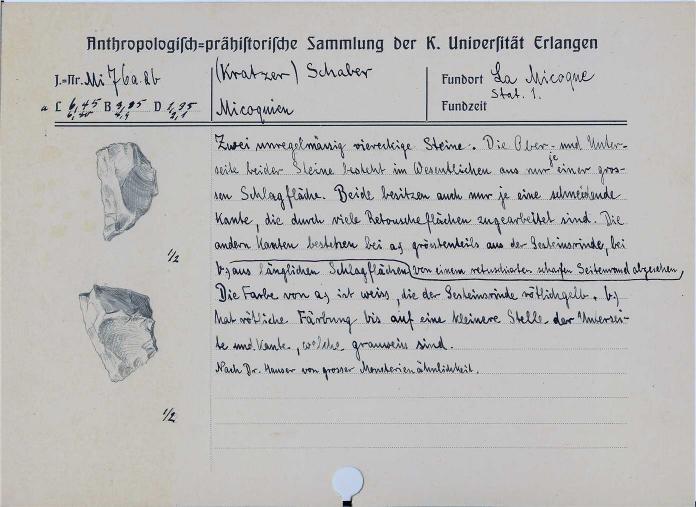 Anthropologisch=prähistorische Sammlung der K. Universität Erlangen
J.=Nr. Mi 76 a. ab
(Kratzer) Schaber
Fundort La Micoque
Stat. 1.
a L 6,45 B 3,95 D 1,95
Micoquien
Fundzeit
Zwei unregelmässig viereckige Steine. Die Ober- und Unter-
seite beider Steine besteht im Wesentlichen aus nur je einer gros-
sen Schlagfläche. Beide besitzen auch nur je eine schneidende
Kante, die durch viele Retouscheflächen zugearbeitet sind. Die
andern Kanten bestehen bei a) grösstenteils aus der Gesteinsrinde, bei
b) aus länglichen Schlagflächen, von einem retuschierten scharfen Seitenrand abgesehen,
Die Farbe von a) ist weiss, die der Gesteinsrinde rötlichgelb. b)
hat rötliche Färbung bis auf eine kleinere Stelle der Untersei-
te und Kante, welche grauweiss sind.
Nach Dr. Hauser von grosser Mousterienähnlichkeit.
1/2
1/2